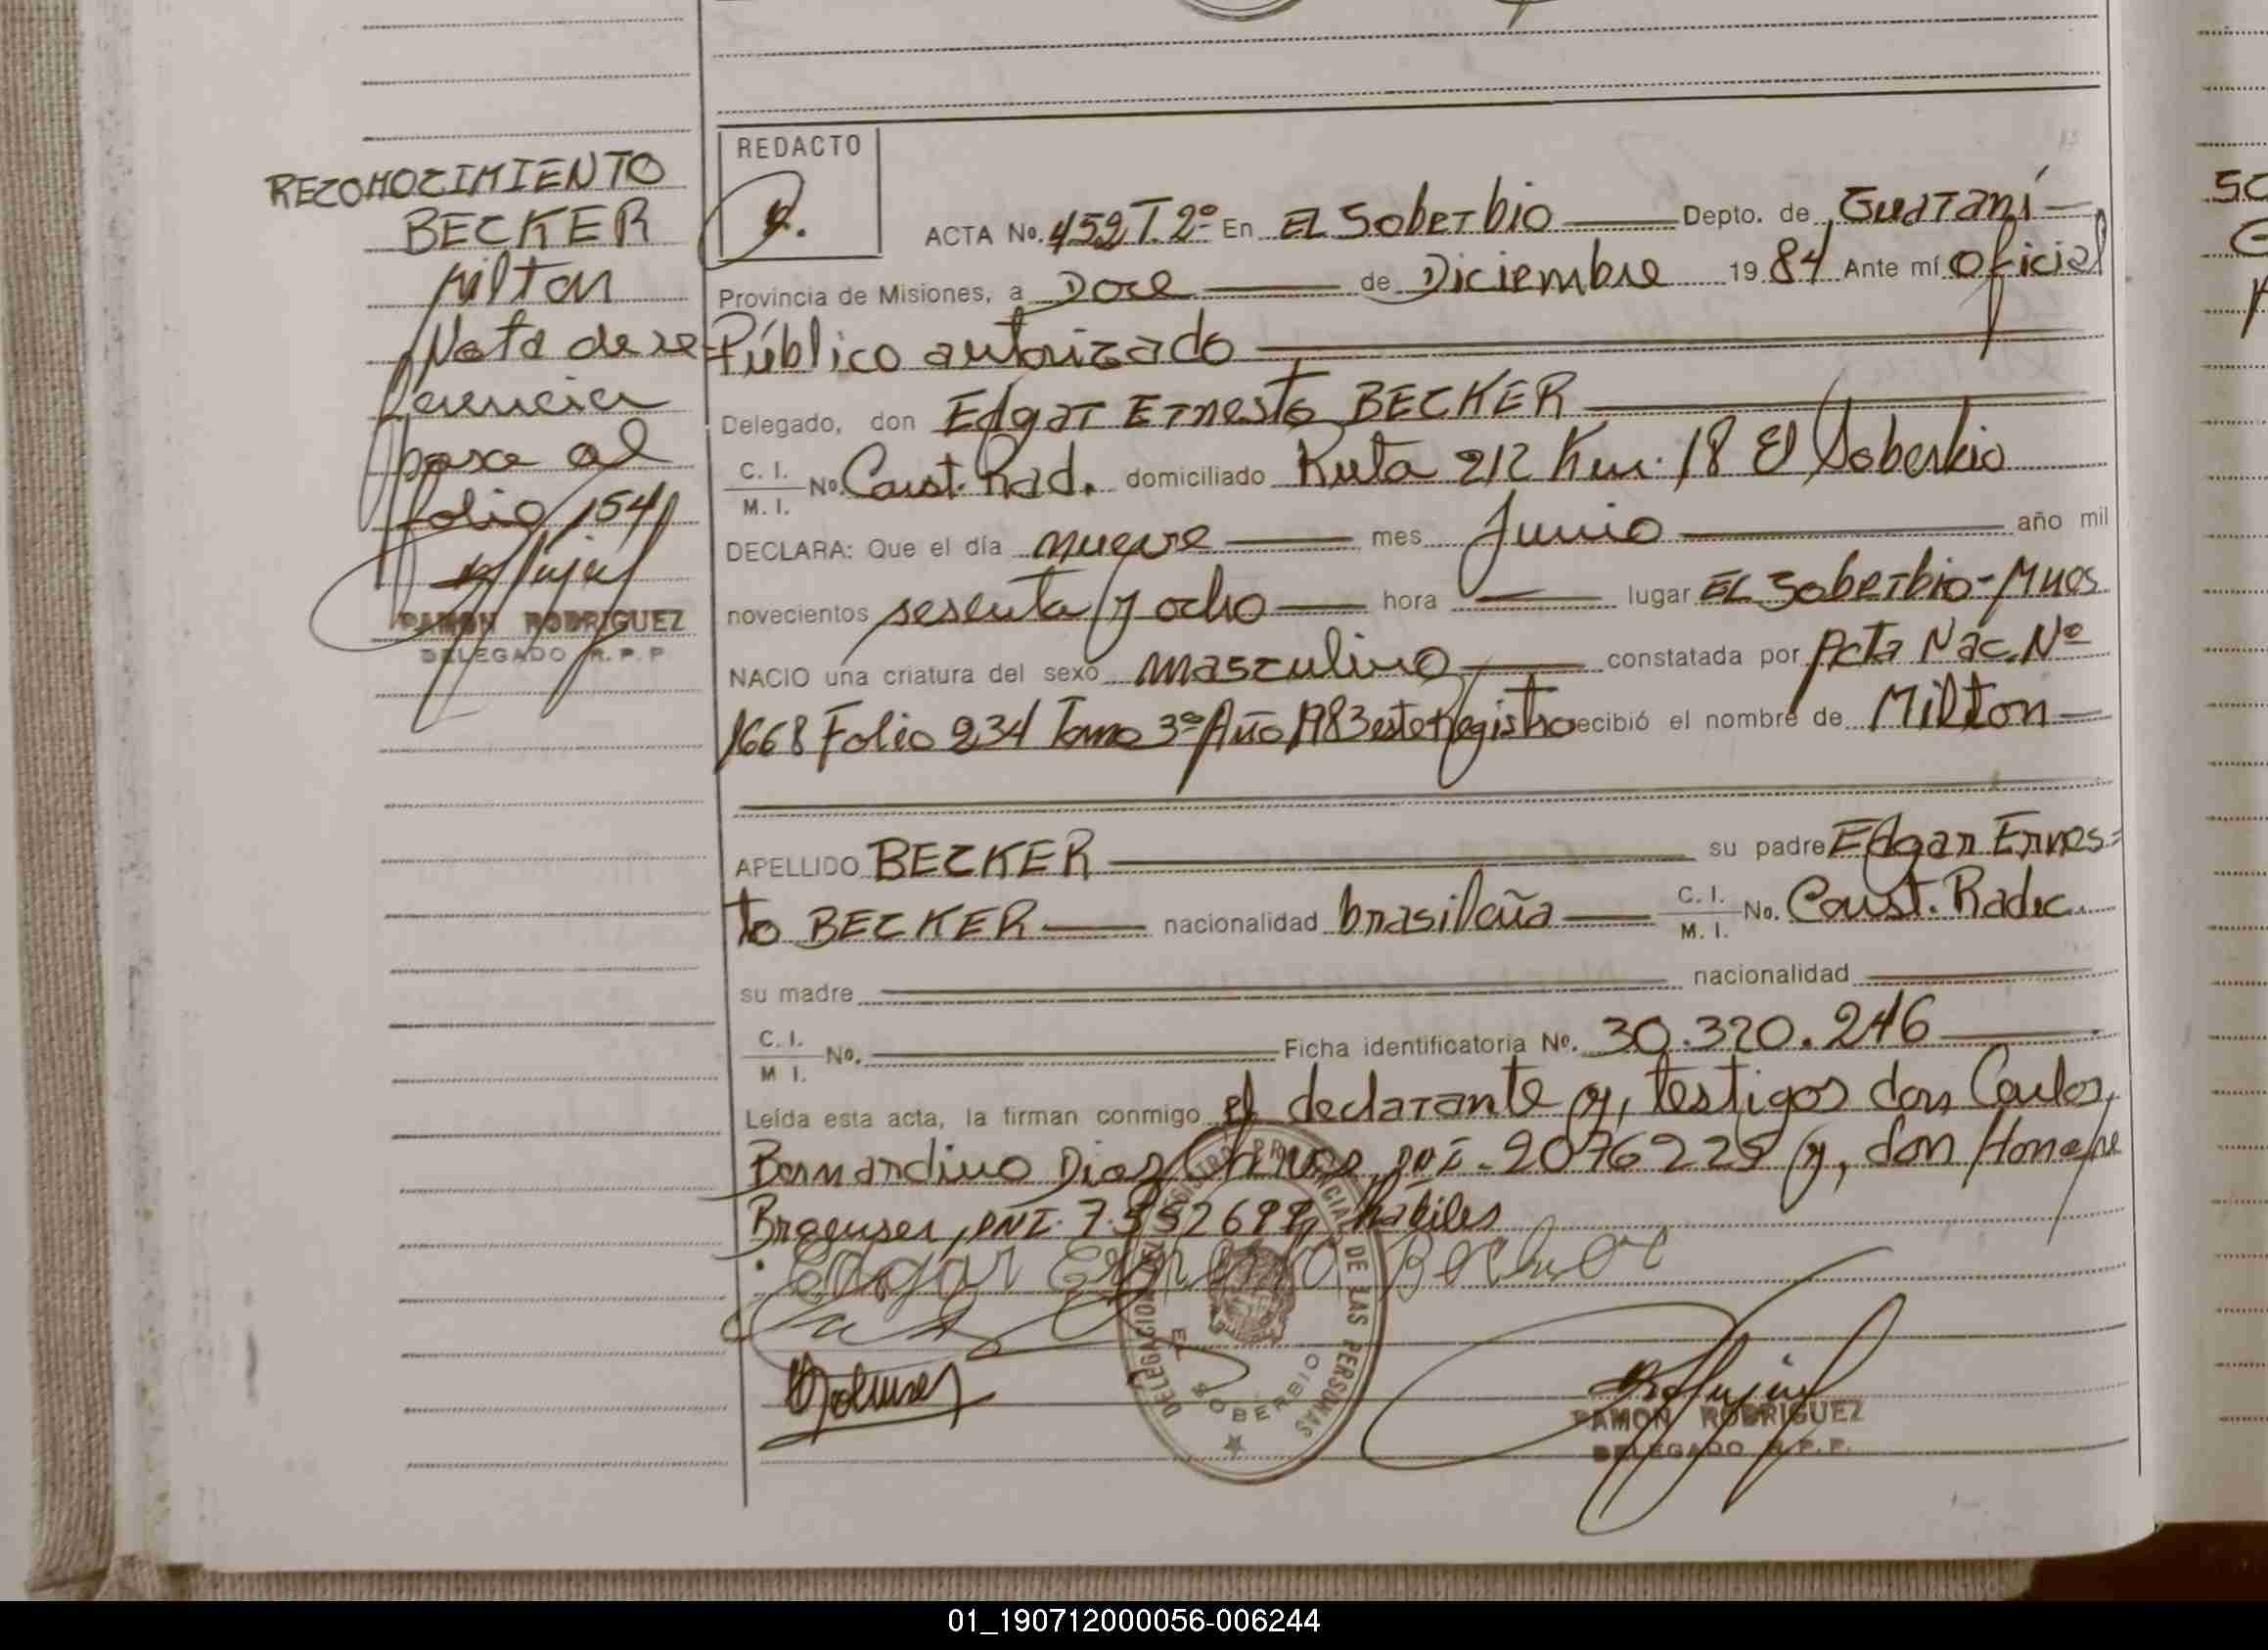 RECONOCIMIENTO
BECKER
Milton
Nota de re-
ferencia
pasa al
folio 154
RAMON RODRIGUEZ
DELEGADO R.P.P
REDACTO
ACTA No. 452 T. 2º En EL Soberbio Depto. de Guaraní
Provincia de Misiones, a Doce de Diciembre 19 84 Ante mí Oficial
Público autorizado
Delegado, don Edgar Ernesto BECKER
C. I. / M. I. No. Const. Rad. domiciliado Ruta 212 Km. 18 El Soberbio
DECLARA: Que el día nueve mes Junio año mil
novecientos sesenta y ocho hora lugar EL Soberbio-Mnes
NACIO una criatura del sexo masculino constatada por Acta Nac. Nº
1668 Folio 234 Tomo 3º Año 1983 este Registro recibió el nombre de Milton
APELLIDO BECKER su padre Edgar Ernes=
to BECKER nacionalidad brasileña C. I. / M. I. No. Const. Radic.
su madre nacionalidad
C. I. / M I. No. Ficha identificatoria Nº. 30.320.246
Leída esta acta, la firman conmigo el declarante y, testigos don Carlos
Bernardino Dias DNI. 2076225 y, don
DNI. hábiles
Edgar Ernesto Becker
DELEGACION DEL REGISTRO PROVINCIAL DE LAS PERSONAS
EL SOBERBIO
RAMON RODRIGUEZ
DELEGADO R.P.P.
SC
01_190712000056-006244